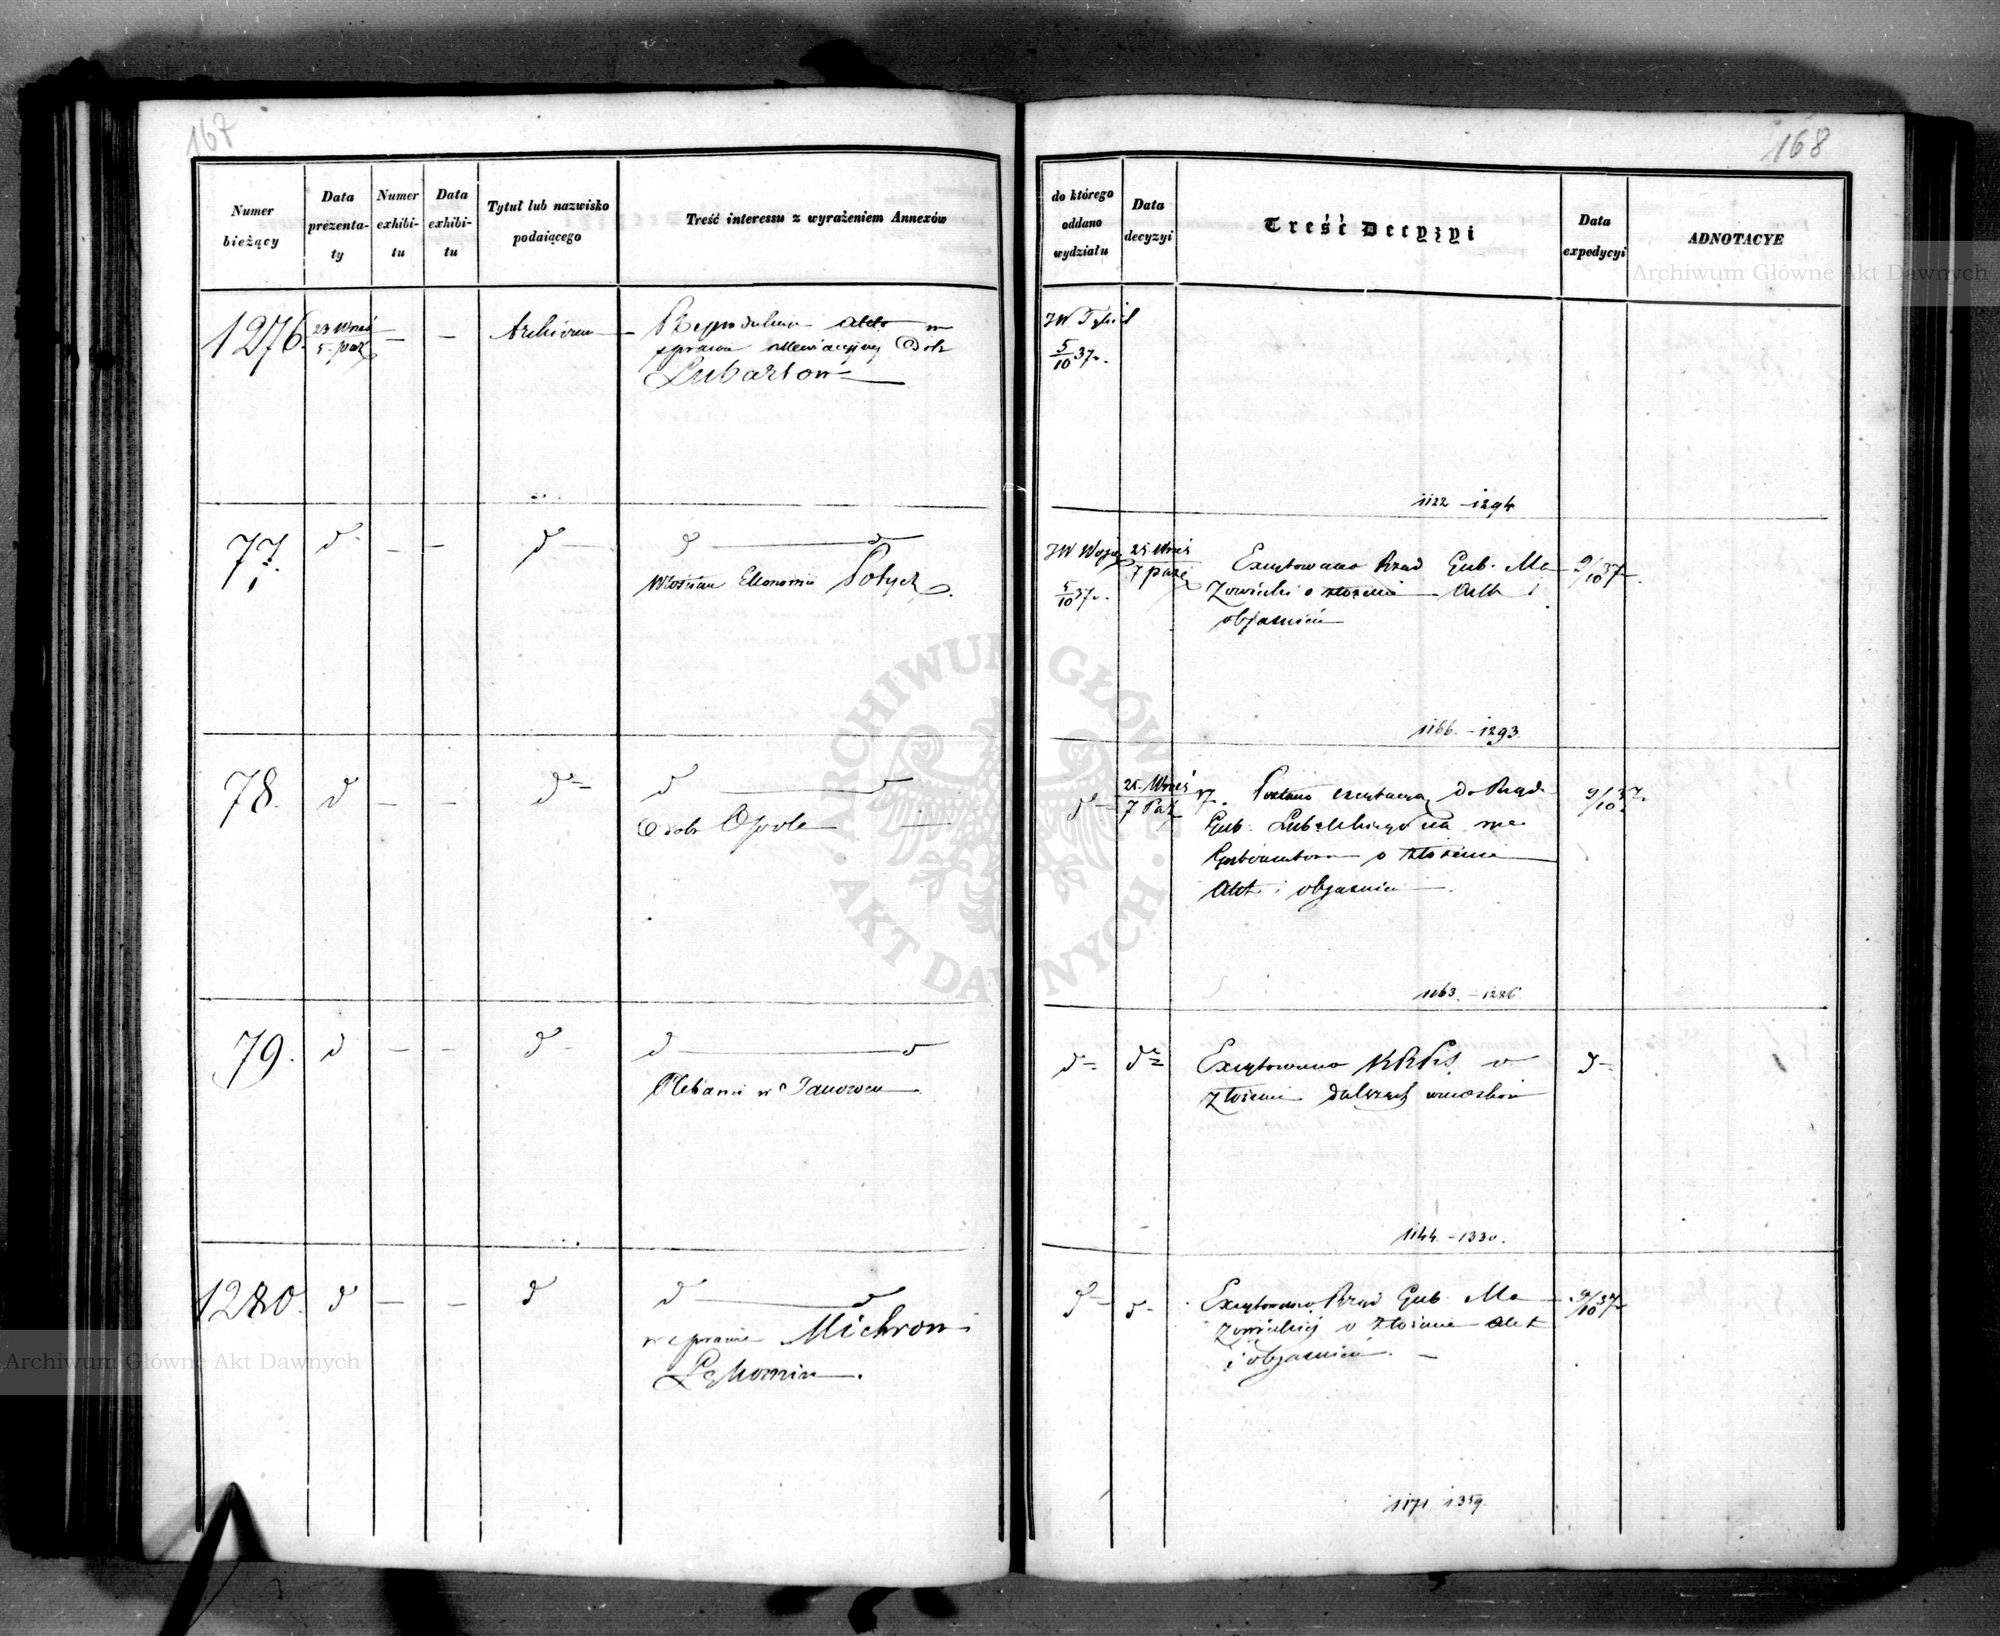 167
Numer bieżący
Data prezenta-ty
Numer exhibi-tu
Data exhibi-tu
Tytuł lub nazwisko podaiącego
Treść interessu z wyrażeniem Annexów
1276.
23 Wrześ
5. paź
—
—
Archiwum
Reprodukcia Akt w
sprawie Dobr
Lubartow
77.
d
—
—
d
d — d
Włościan Ekonomii
78.
d
—
—
d
d — d
Dobr Opole
79.
d
—
—
d
d — d
Plebanii w Janowcu
1280.
d
—
—
d
d — d
w sprawie Michrow i
Pękomin
168
do którego oddano wydziału
Data decyzyi
Treść Decyzyi
Data expedycyi
ADNOTACYE
5/10 37.
1122 - 1294
JW
5/10 37.
25 Wrześ
7 paź
Excytowano Rząd Gub. Ma
zowiecki o złożenie Akt i
objaśnień
9/10 37
1166. - 1293.
d
25. Wrześ
7 Paź
37.
excytacya do Rządu
Gub. Lubelskiego na ręce
Gubernatora o złożenie
Akt i objaśnień
9/10 37.
1163. - 1286.
d
d
Excytowano KRPiS o
złożenie dalszych wniosków
d
1144. - 1330.
d
d
Excytowano Rząd Gub. Ma
zowiecki o złożenie Akt
i objaśnień.
9/10 37
1171 1359.
Archiwum Główne Akt Dawnych
ARCHIWUM GŁÓWNE · AKT DAWNYCH ·
Archiwum Główne Akt Dawnych